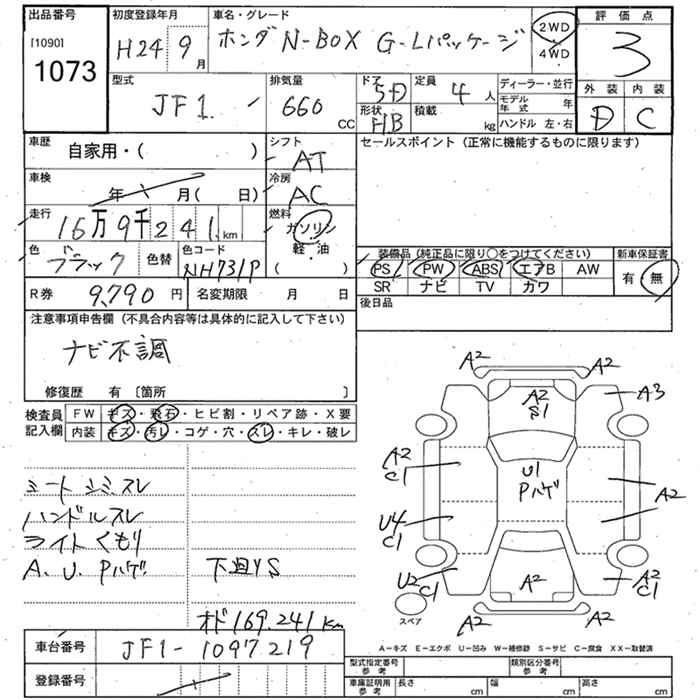 出品番号 初度登録年月 車名・グレード 評価点
[1090] 1073 H24 9月 ホンダ N-BOX G-Lパッケージ 2WD 4WD 3
型式 排気量 ドア 定員 ディーラー・並行 外装 内装
JF1 660 CC 5D 4人 モデル年式 年 D C
形状 F/B 積載 kg ハンドル 左・右
車歴 自家用・( ) シフト AT セールスポイント (正常に機能するものに限ります)
車検 年 月( 日) 冷房 AC
走行 16万9千241km 燃料 ガソリン
色 ブラック 色替 色コード NH731P 軽・油 ( )
装備品 (純正品に限り〇をつけてください) 新車保証書
PS PW ABS エアB AW 有 無
SR ナビ TV カワ
R券 9,790円 名変期限 月 日 後日品
注意事項申告欄 (不具合内容等は具体的に記入して下さい)
ナビ不調
修復歴 有 〔箇所 〕
検査員記入欄 FW キズ・飛石・ヒビ割・リペア跡・X要
内装 キズ・汚レ・コゲ・穴・スレ・キレ・破レ
シートシミ、スレ
ハンドルスレ
ライトくもり
A、U、Pハゲ 下廻YS
オド169,241Km
A2 A2
A2 S1 A3
A2 C1 U1 Pハゲ A2
U4 C1
U2 C1 A2 A2 C1
スペア A2 A2
A－キズ E－エクボ U－凹み W－補修跡 S－サビ C－腐食 XX－取替済
車台番号 JF1-1097219
登録番号
型式指定番号 参考 類別区分番号 参考
車庫証明用 参考 長さ cm 幅 cm 高さ cm